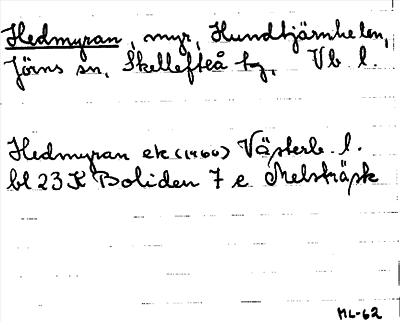 Hedmyran, myr, Hundtjärnhelen,
Jörns sn, Skellefteå tg, Vb l.
Hedmyran ek (1960) Västerb. l.
bl 23 K Boliden 7 e Melsträsk
ML-62